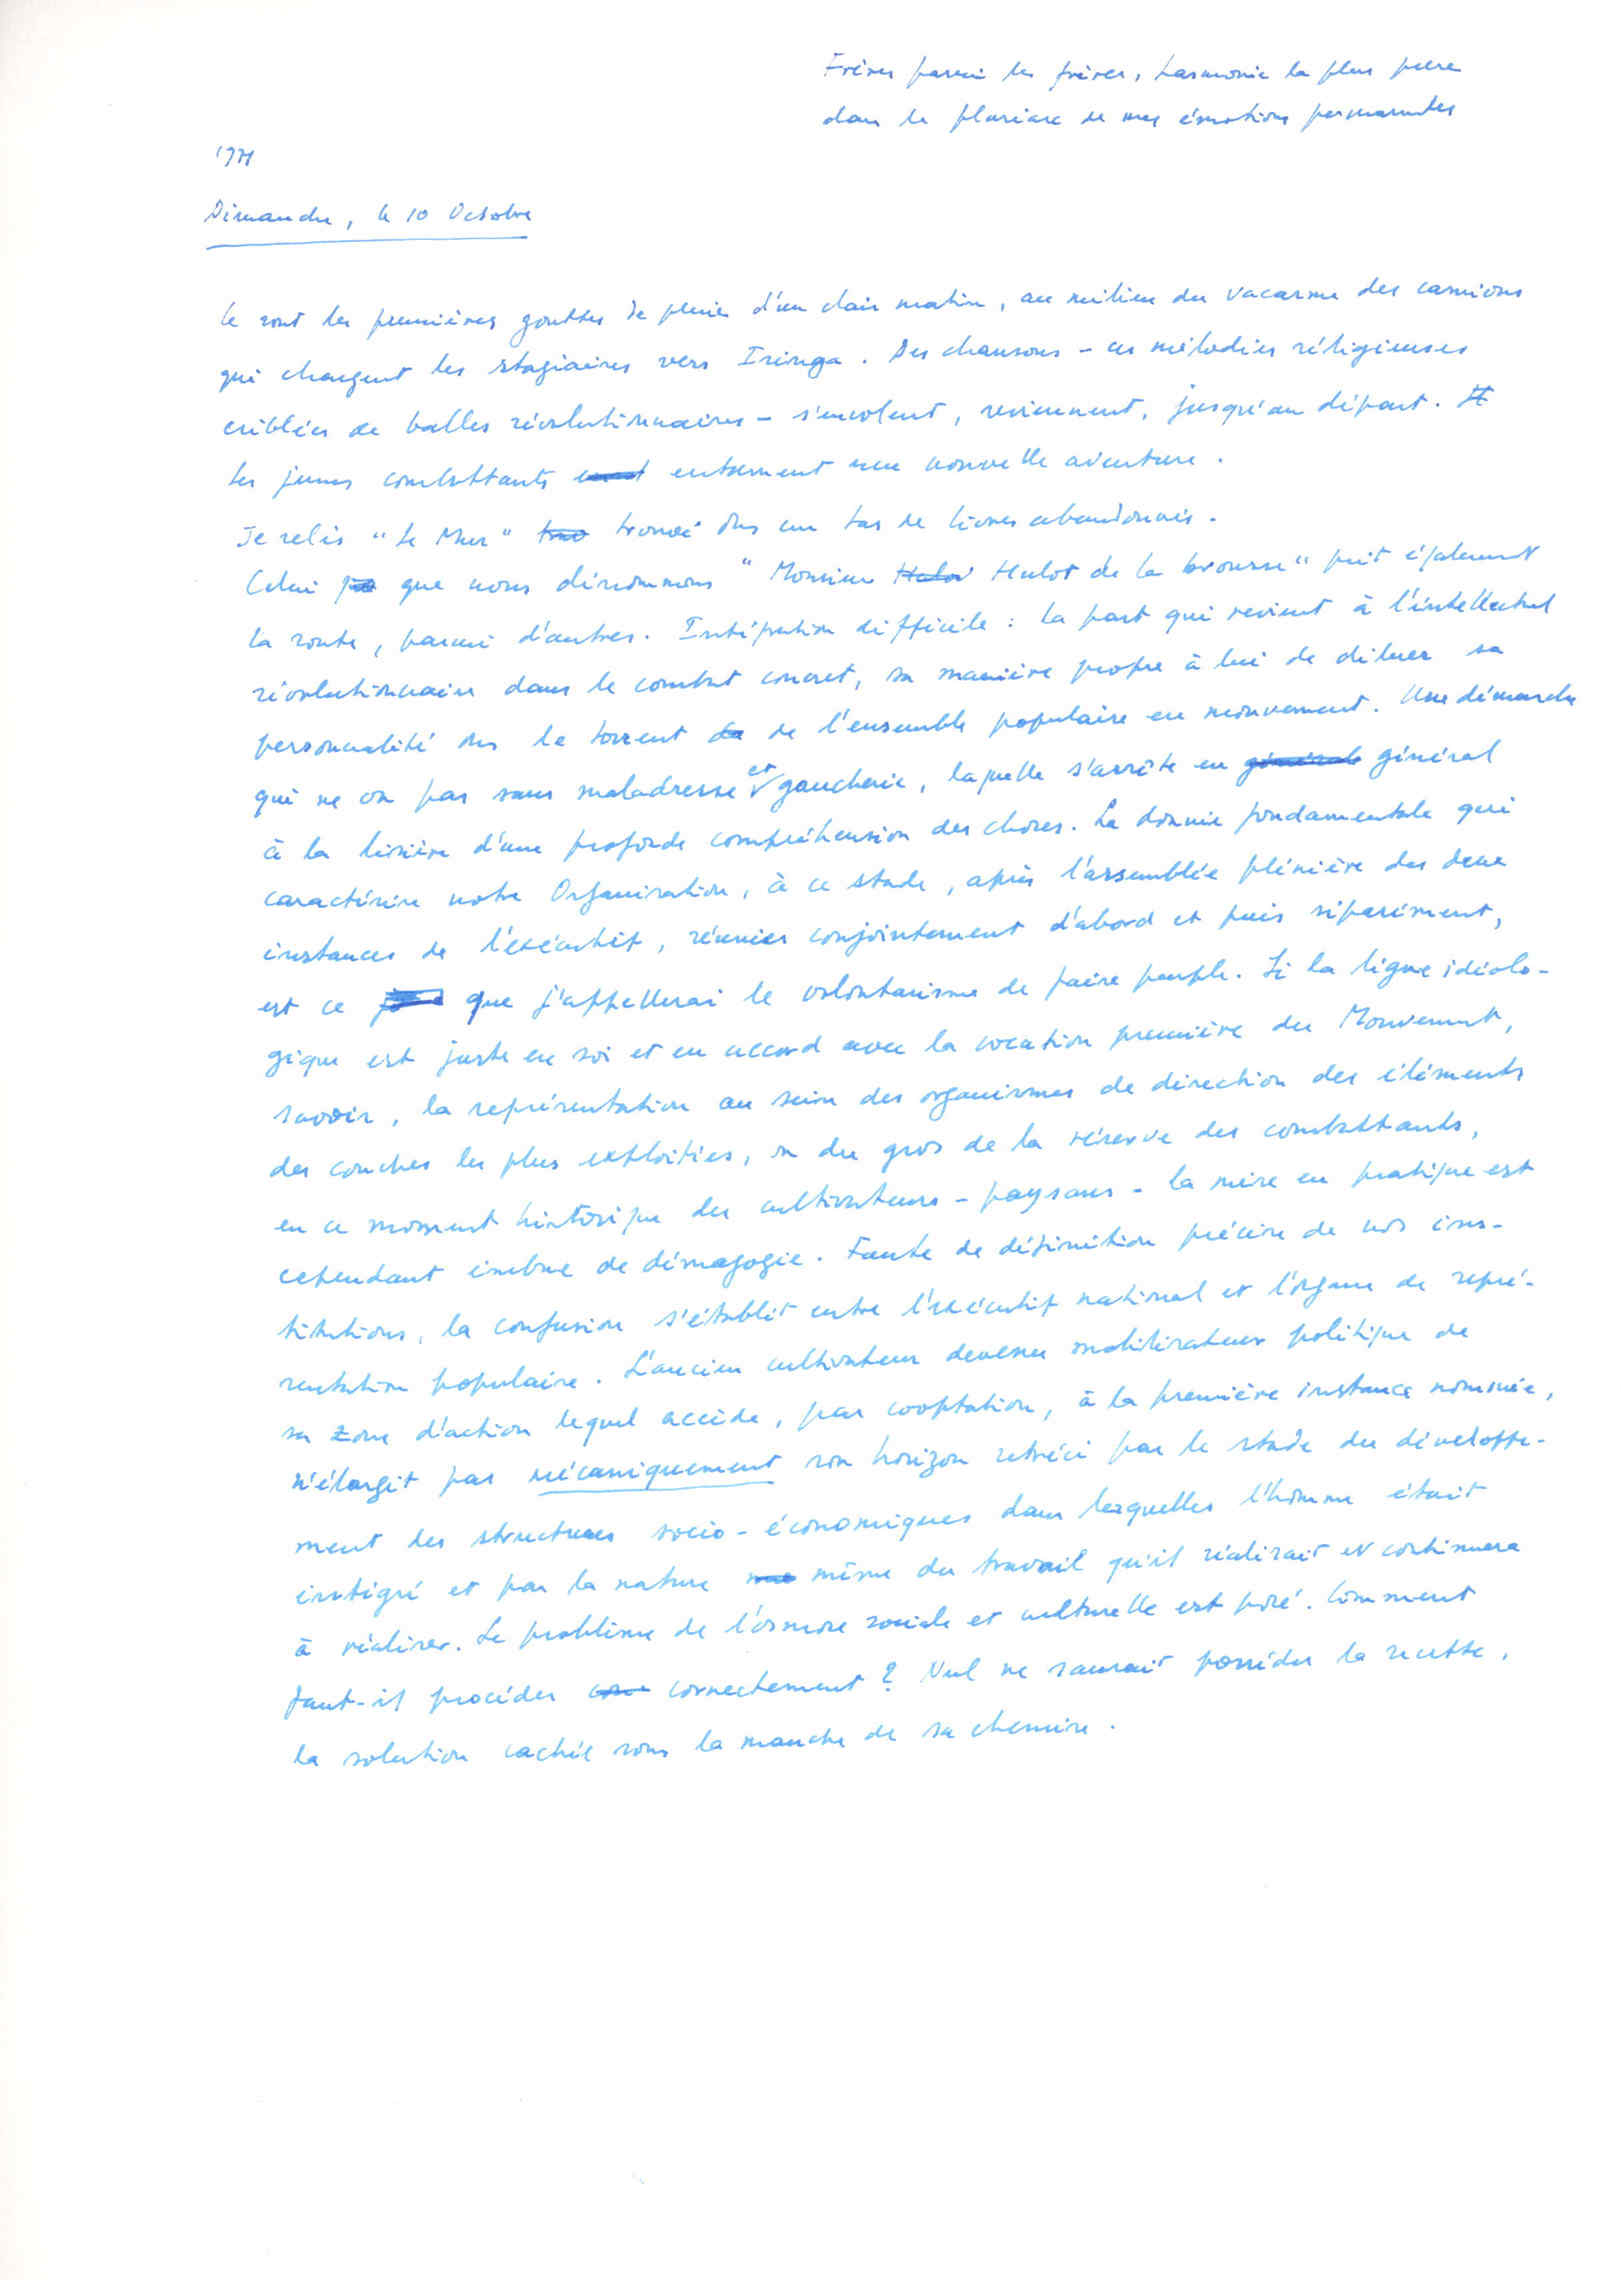 Frères parmi les frères, harmonie la plus pure
dans le de mes émotions permanentes
1971
Dimanche, le 10 Octobre
Ce sont les premières gouttes de pluie d'un clair matin, au milieu du vacarme des camions
qui chargent les stagiaires vers Iringa. Des chansons - ces mélodies réligieuses
criblées de balles révolutionnaires - s'envolent, reviennent, jusqu'au départ.
Les jeunes combattants entament une nouvelle aventure.
Je relis "Le Mur" trouvé dns un tas de livres abandonnés.
Celui que nous dénommons "Monsieur Hulot de la brousse" prit également
la route, parmi d'autres. Intégration difficile : la part qui revient à l'intellectuel
révolutionnaire dans le combat concret, sa manière propre à lui de diluer sa
personnalité dns le torrent de l'ensemble populaire en mouvement. Une démarche
qui ne va pas sans maladresse et gaucherie, laquelle s'arrête en général
à la lisière d'une profonde compréhension des choses. La donnée fondamentale qui
caractérise notre Organisation, à ce stade, après l'assemblée plénière des deux
instances de l'exécutif, réunies conjointement d'abord et puis séparément,
est ce que j'appellerai le volontarisme de faire peuple. Si la ligne idéolo-
gique est juste en soi et en accord avec la vocation première du Mouvement,
savoir, la représentation au sein des organismes de direction des éléments
des couches les plus exploitées, ou du gros de la réserve des combattants,
en ce moment historique des cultivateurs - paysans - la mise en pratique est
cependant imbue de démagogie. Faute de définition précise de nos ins-
titutions, la confusion s'établit entre l'exécutif national et l'organe de repré-
sentation populaire. L'ancien cultivateur devenu mobilisateur politique de
sa zone d'action lequel accède, par cooptation, à la première instance nommée,
n'élargit pas mécaniquement son horizon rétréci par le stade du développe-
ment des structures socio-économiques dans lesquelles l'homme était
intégré et par la nature même du travail qu'il réalisait et continuera
à réaliser. Le problème de l'osmose sociale et culturelle est posé. Comment
faut-il procéder correctement ? Nul ne saurait posséder la recette,
la solution cachée sous la manche de sa chemise.